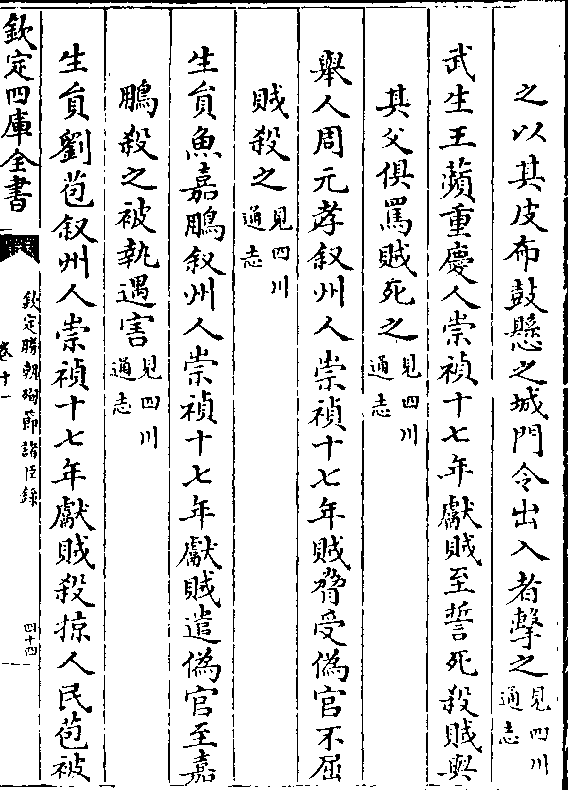 之以其皮布鼓懸之城門令出入者擊之見四川通志
武生王蘋重慶人崇禎十七年獻賊至誓死殺賊與
其父俱罵賊死之見四川通志
舉人周元孝叙州人崇禎十七年賊脅受偽官不屈
賊殺之見四川通志
生員魚嘉鵬叙州人崇禎十七年獻賊遣偽官至嘉
鵬殺之被執遇害見四川通志
生員劉苞叙州人崇禎十七年獻賊殺掠人民苞被
欽定四庫全書
欽定勝朝殉節諸臣錄
卷十一
四十四